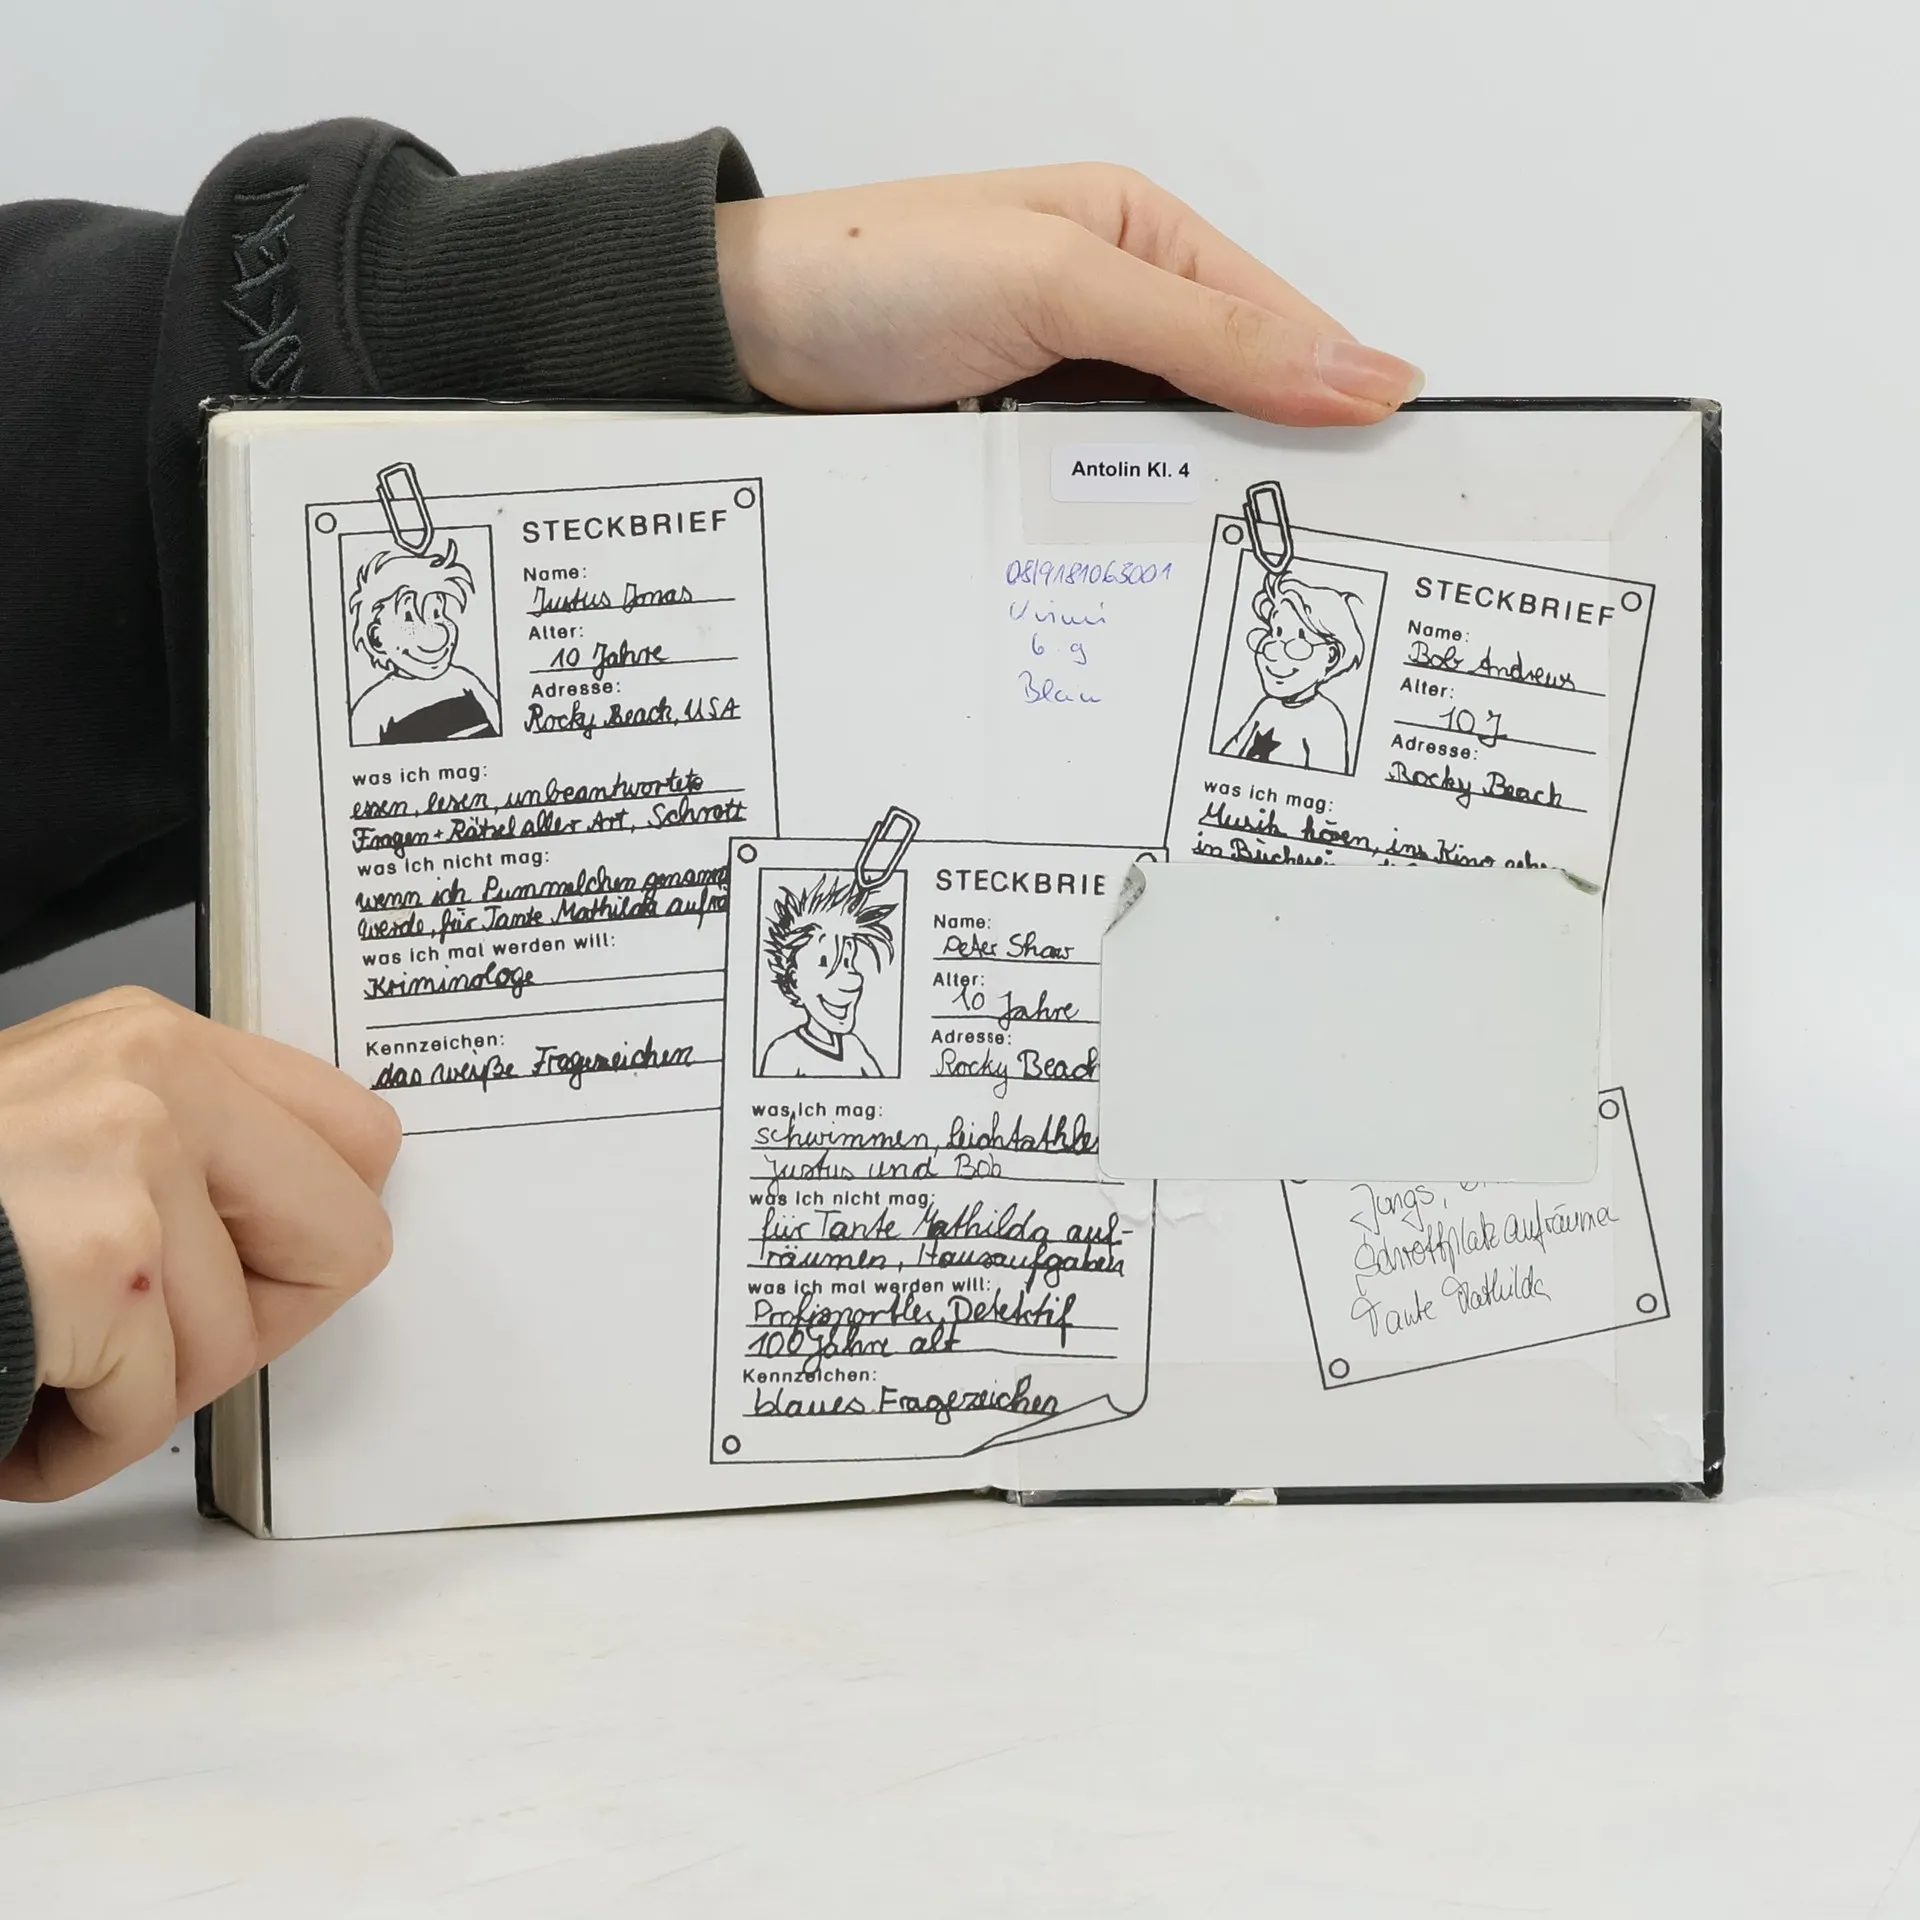 STECKBRIEF
Name:
Justus Jonas
Alter:
10 Jahre
Adresse:
Rocky Beach, USA
was ich mag:
essen, lesen, unbeantwortete
Fragen + Rätsel aller Art, Schrott
was ich nicht mag:
wenn ich Pummelchen genannt
werde, für Tante Mathilda
was ich mal werden will:
Kriminologe
Kennzeichen:
das weiße Fragezeichen
STECKBRIE
Name:
Peter Shaw
Alter:
10 Jahre
Adresse:
Rocky Beach
was ich mag:
schwimmen,
Justus und Bob
was ich nicht mag:
für Tante Mathilda auf-
räumen, Hausaufgaben
was ich mal werden will:
Profisportler, Detektiv
100 Jahre alt
Kennzeichen:
blaues Fragezeichen
Antolin Kl. 4
6 g
STECKBRIEF
Name:
Bob Andrews
Alter:
10 J
Adresse:
Rocky Beach
was ich mag:
Musik hören, ins Kino gehen
in
Jungs,
Schrottplatz aufräumen
Tante Mathilda